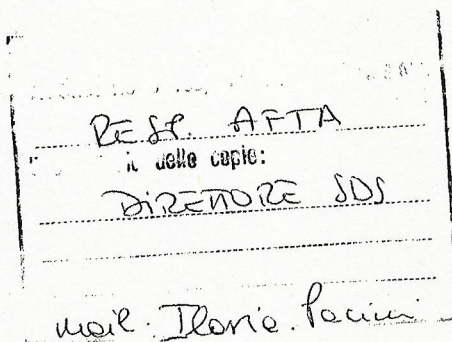 RESP. AFTA
delle copie:
DIRETTORE SDS
mail: Ilaria. Pacini